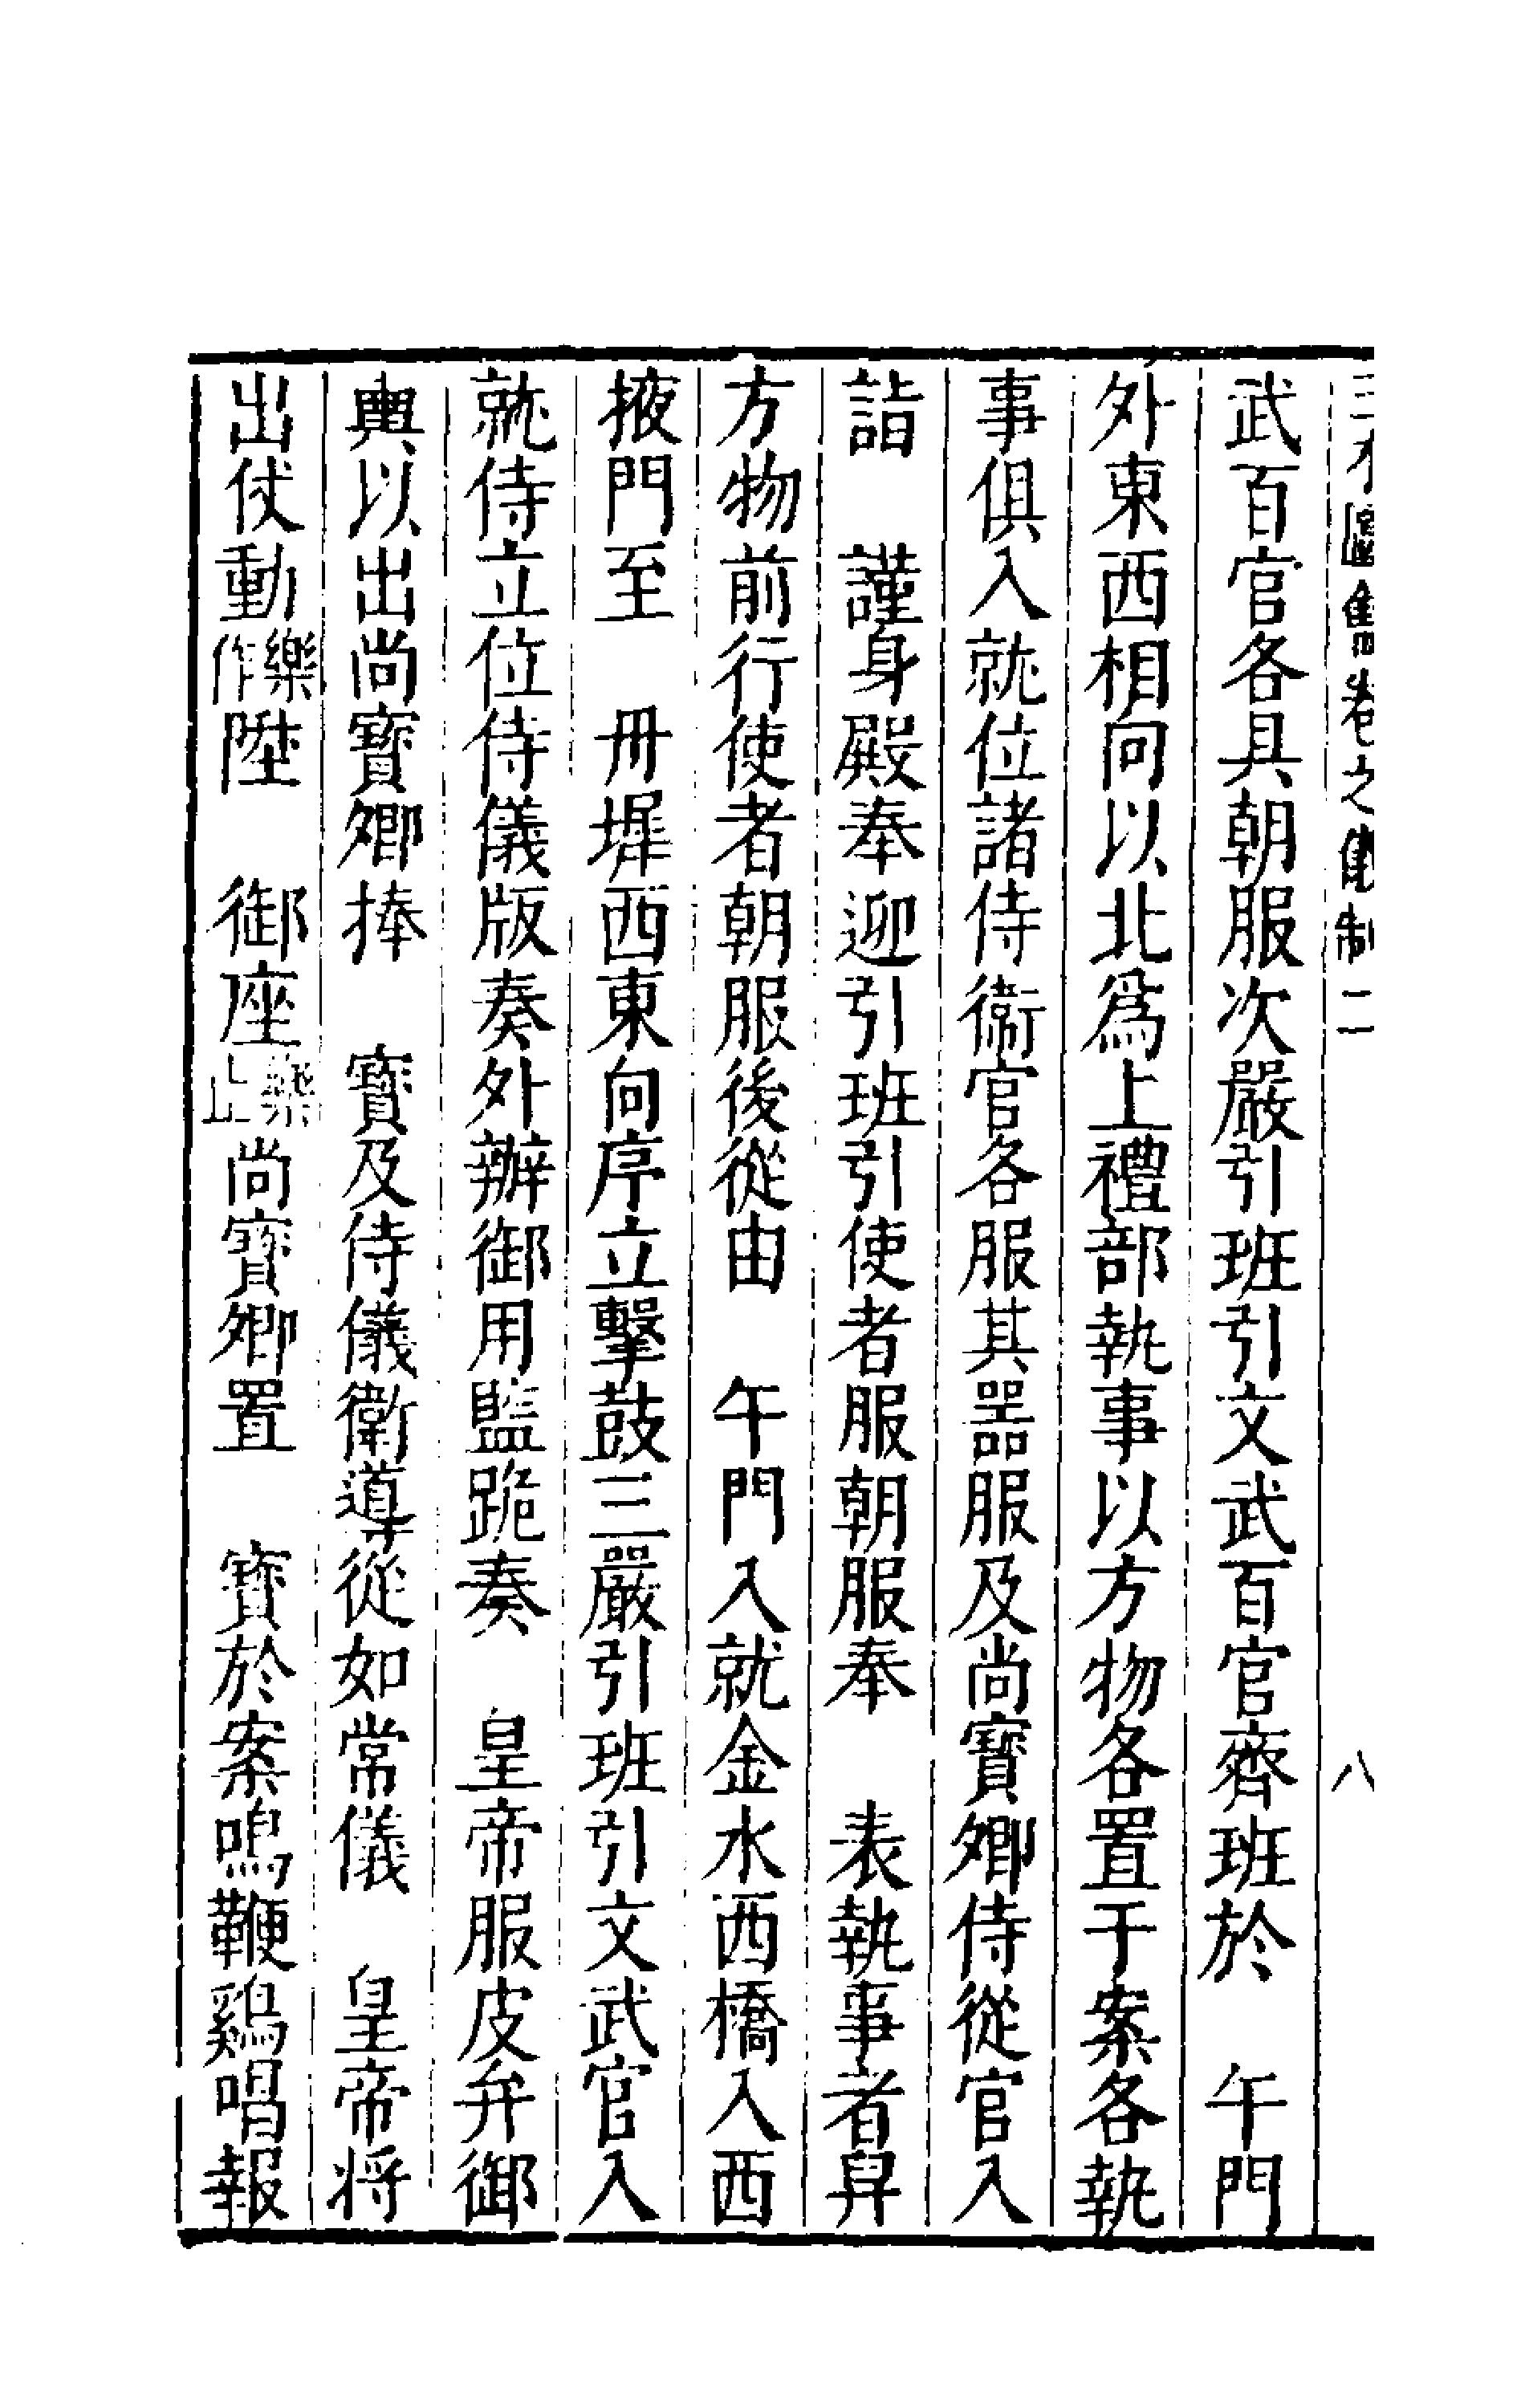 三才圖會卷之儀制二 八
武百官各具朝服次嚴引班引文武百官齊班於 午門
外東西相向以北爲上禮部執事以方物各置于案各執
事俱入就位諸侍衞官各服其器服及尚寶卿侍從官入
詣 謹身殿奉迎引班引使者服朝服奉 表執事者舁
方物前行使者朝服後從由 午門入就金水西橋入西
掖門至 丹墀西東向序立擊鼓三嚴引班引文武官入
就侍立位侍儀版奏外辦御用監跪奏 皇帝服皮弁御
輿以出尚寶卿捧 寶及侍儀衛導從如常儀 皇帝将
出仗動樂作陞 御座樂止尚寶卿置 寶於案鳴鞭鷄唱報